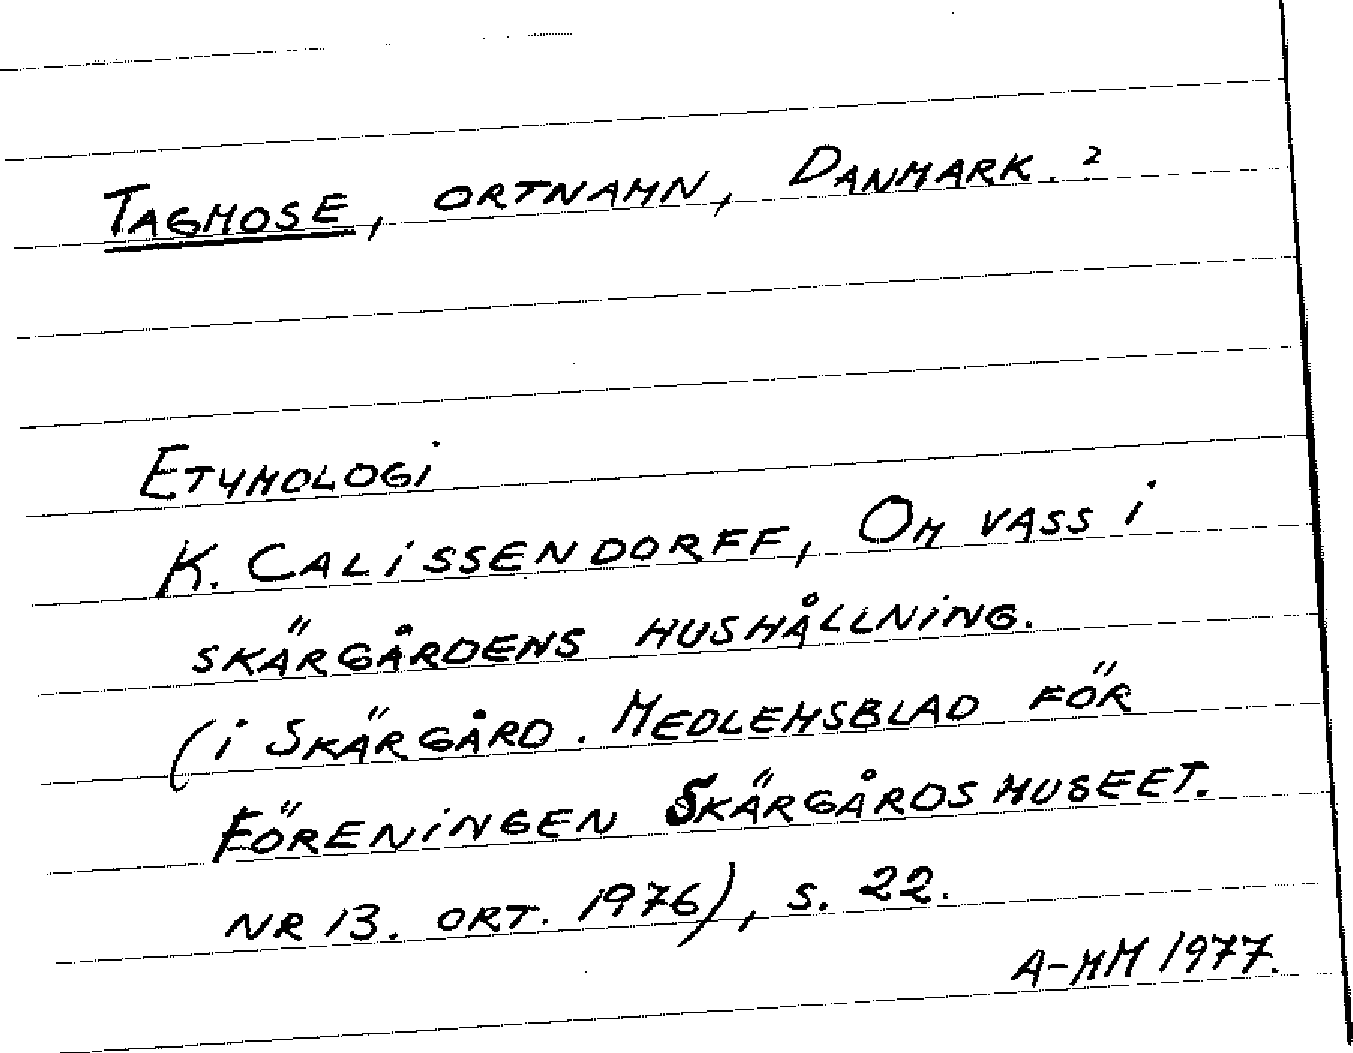 TAGMOSE, ORTNAMN, DANMARK. ?
ETYMOLOGI
K. CALISSENDORFF, OM VASS I
SKÄRGÅRDENS HUSHÅLLNING.
(I SKÄRGÅRD. MEDLEMSBLAD FÖR
FÖRENINGEN SKÄRGÅRDSMUSEET.
NR 13. ORT. 1976), S. 22.
A-MM 1977.